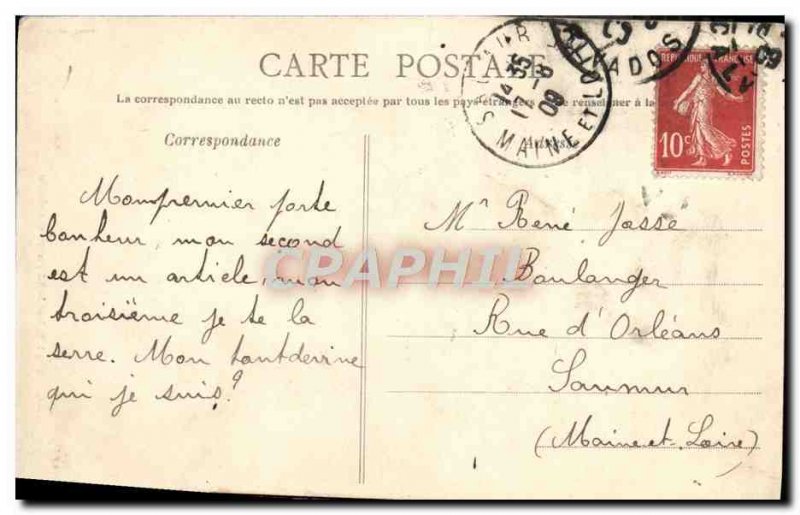 CARTE POSTALE
La correspondance au recto n'est pas acceptée par tous les pays étrangers se renseigner à la
Correspondance
Adresse
SAUMUR
14 35
17 - 8
09
MAINE ET LOIRE
ADOS
REPUBLIQUE FRANÇAISE
10c
POSTES
Mon premier porte
bonheur, mon second
est un article, mon
troisième je te la
serre. Mon tout devine
qui je suis?
Mr René Josse
Boulanger
Rue d'Orléans
Saumur
(Maine-et-Loire)
CPRAPHIL